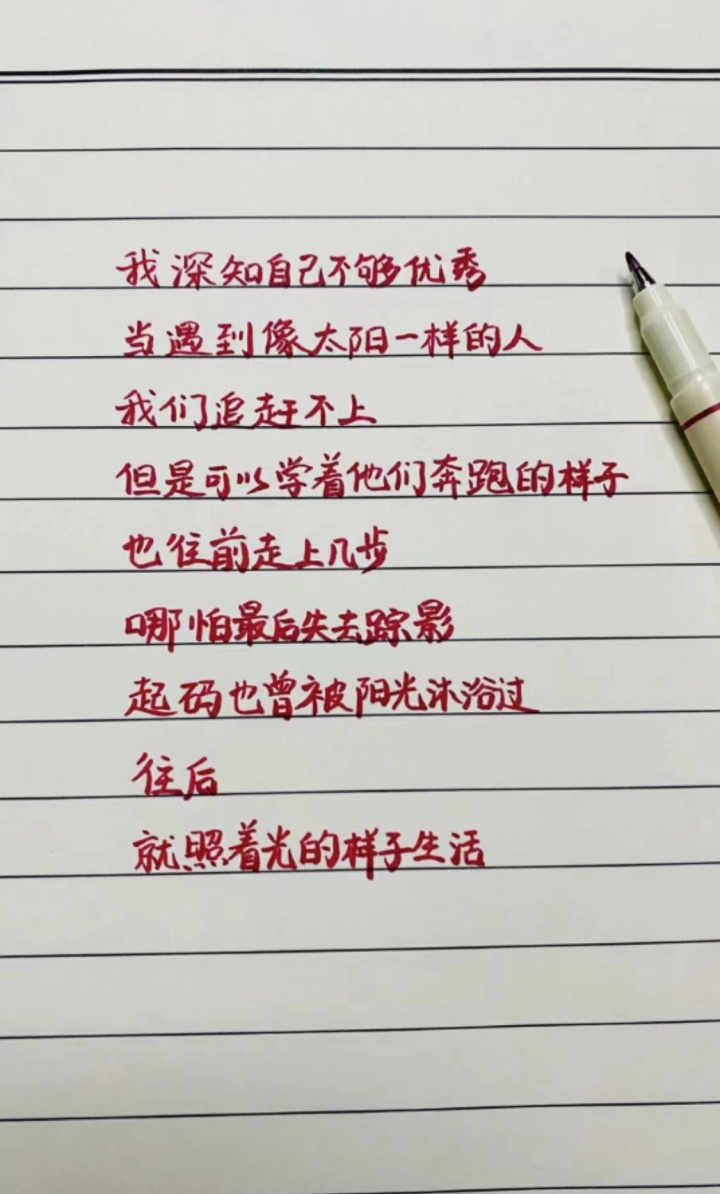 我深知自己不够优秀
当遇到像太阳一样的人
我们追赶不上
但是可以学着他们奔跑的样子
也往前走上几步
哪怕最后失去踪影
起码也曾被阳光沐浴过
往后
就照着光的样子生活